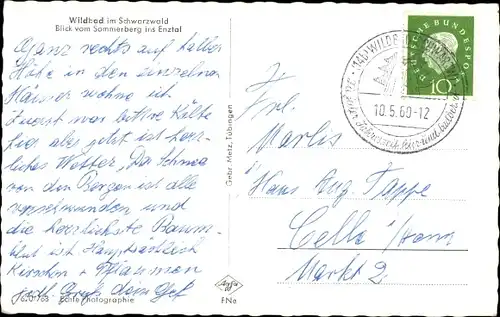 Wildbad im Schwarzwald
Blick vom Sommerberg ins Enztal
Ganz rechts auf halber
Höhe in den einzelnen
Häuser wohne ich.
Zuerst war bittre Kälte
hier aber jetzt ist herr-
liches Wetter, Der Schnee
von den Bergen ist alle
verschwunden und
die herrlichste Baum-
blüt ist. Hauptsächlich
Kirschen + Pflaumen
Echte Photographie
Gebr. Metz, Tübingen
Agfa
FNe
DEUTSCHE BUNDESPOST
10
10.5.60-12
Frl.
Marlis
Hans Aug. Tappe
Celle / Hann
Markt 2